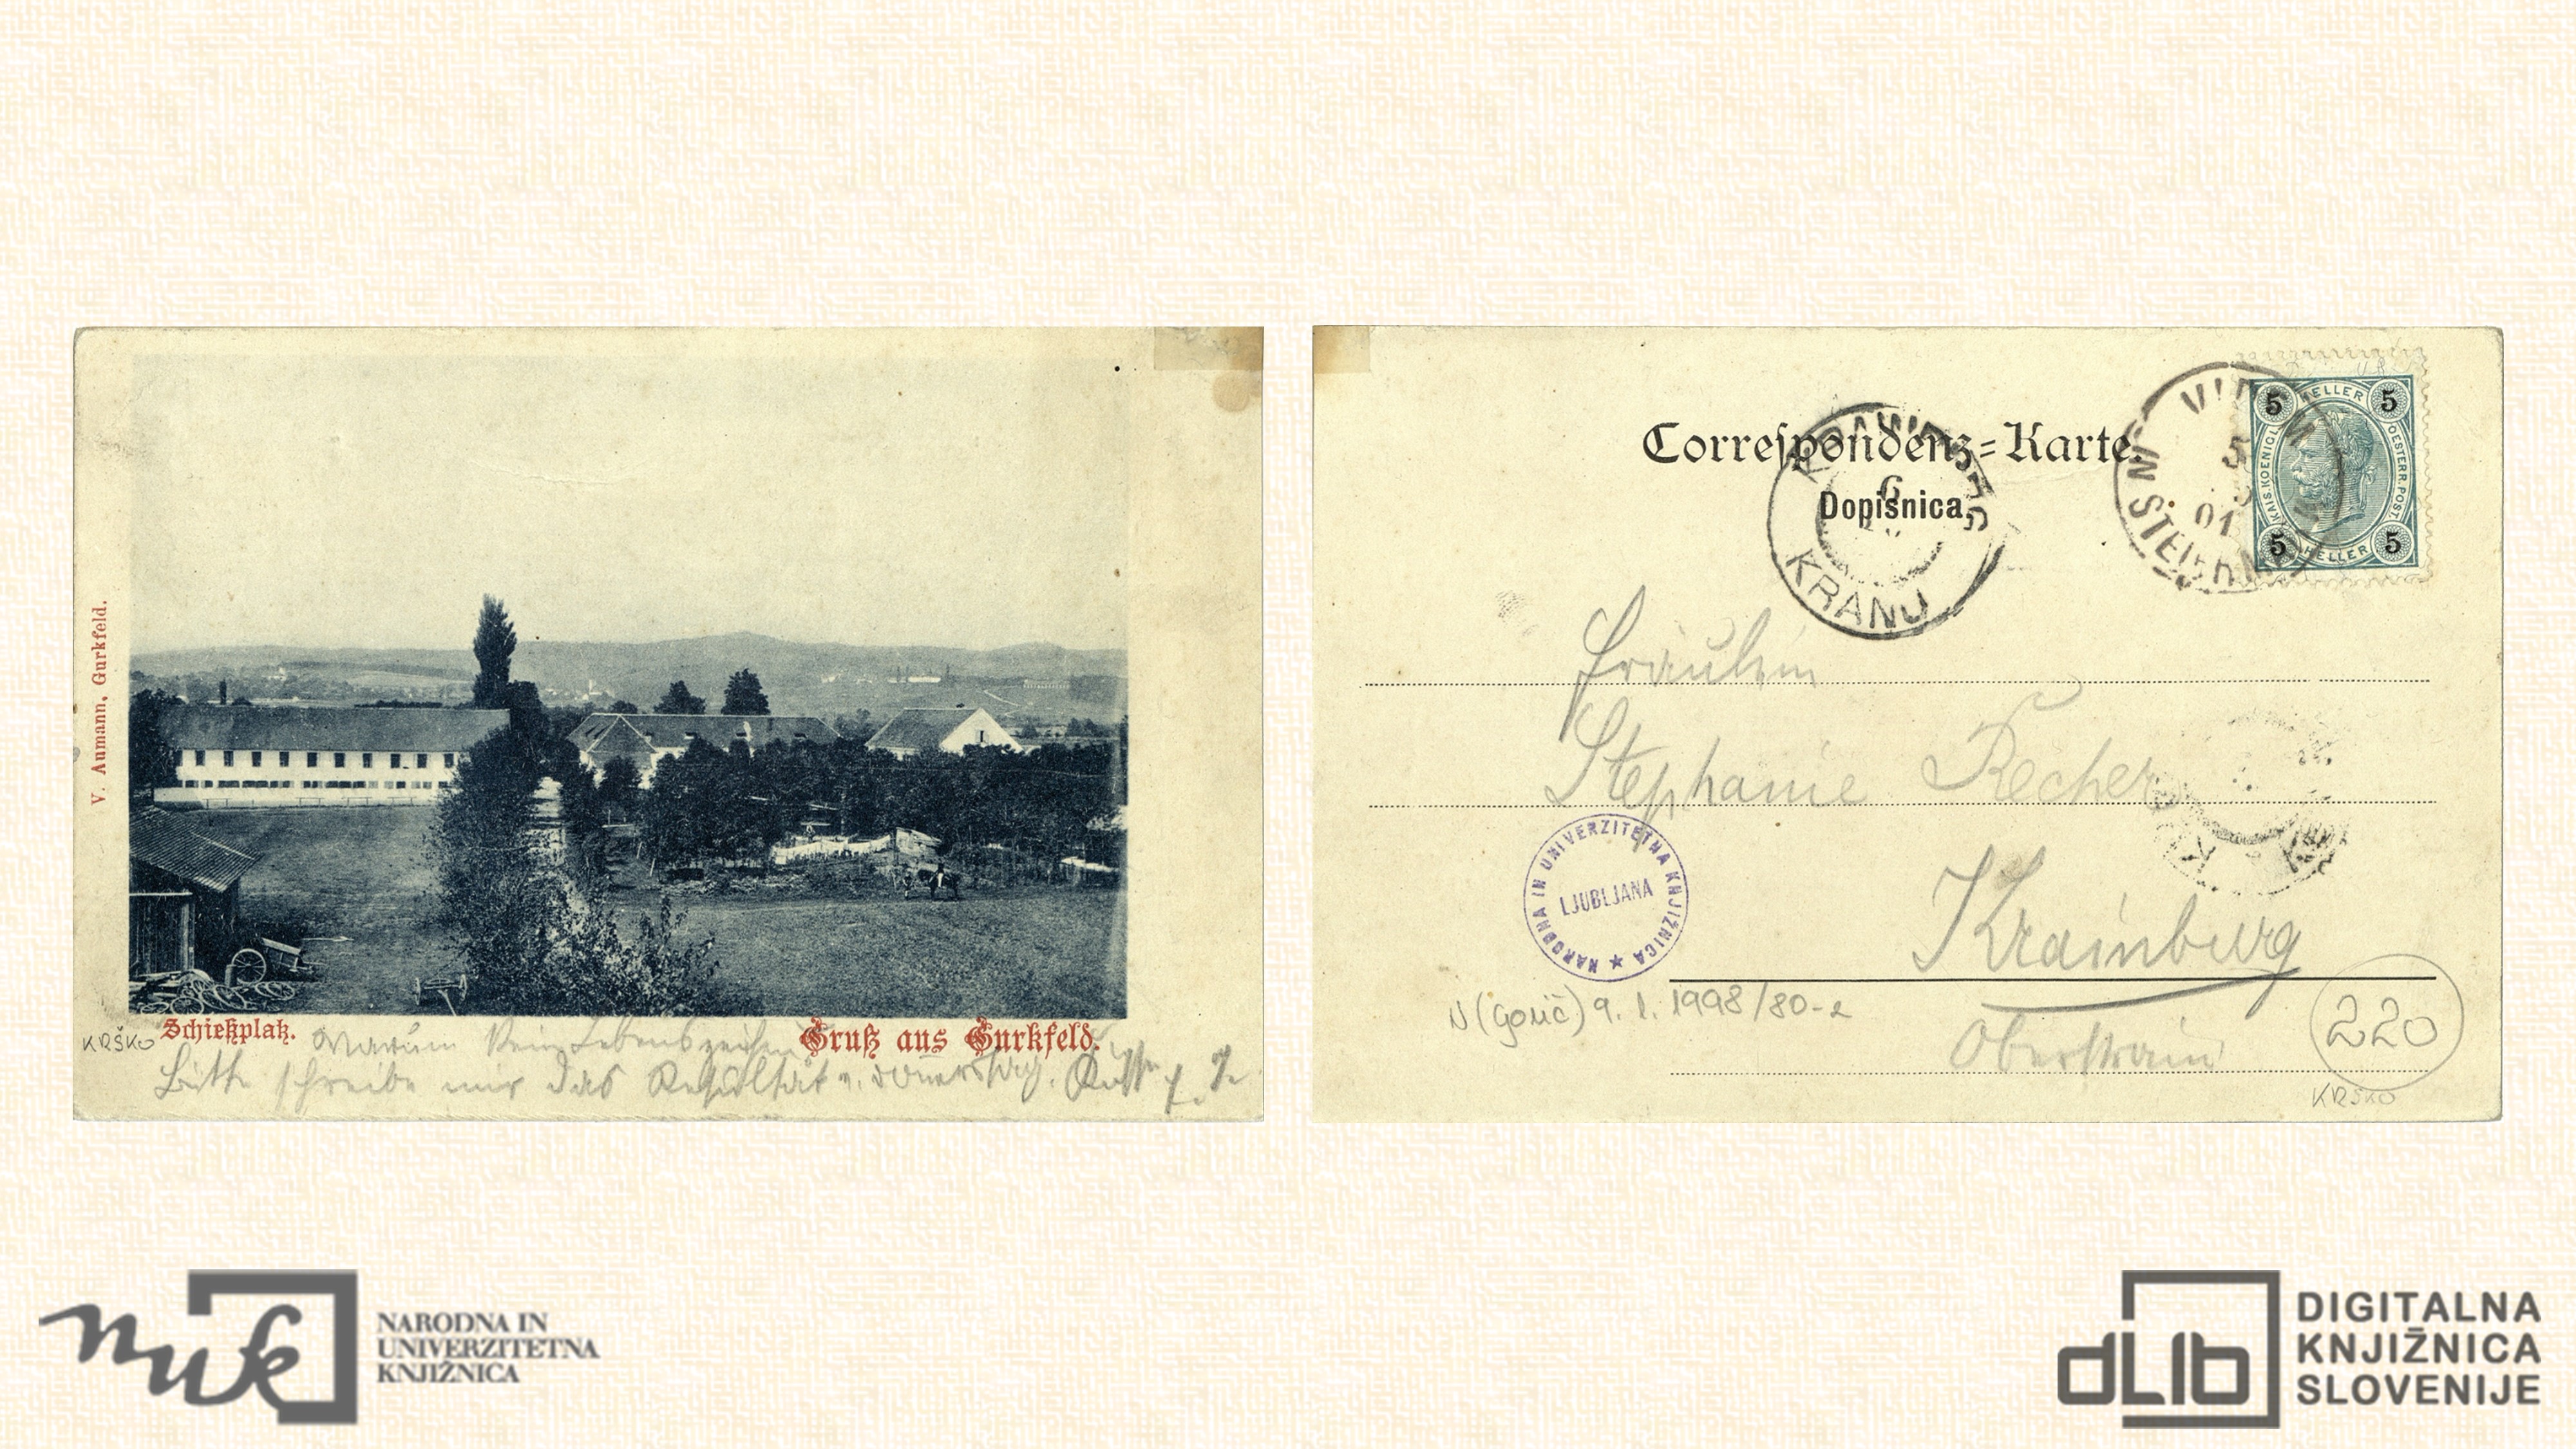 V. Aumann, Gurkfeld.
KRŠKO
Schießplatz.
Warum kein Lebenszeichen
Gruß aus Gurkfeld.
Bitte schreibe mir das Resultat v. Donnerstag.
Correspondenz=Karte.
Dopisnica.
6
KRANJ
5
01
STEIERM
5 HELLER 5
KAIS. KOENIGL.
OESTERR. POST.
5 HELLER 5
Fräulein
Stephanie Recher
NARODNA IN UNIVERZITETNA KNJIŽNICA ★
LJUBLJANA
Krainburg
N (Gorič) 9. I. 1998/80-2
Oberkrain
220
KRŠKO
nuk
NARODNA IN
UNIVERZITETNA
KNJIŽNICA
dLib
DIGITALNA
KNJIŽNICA
SLOVENIJE